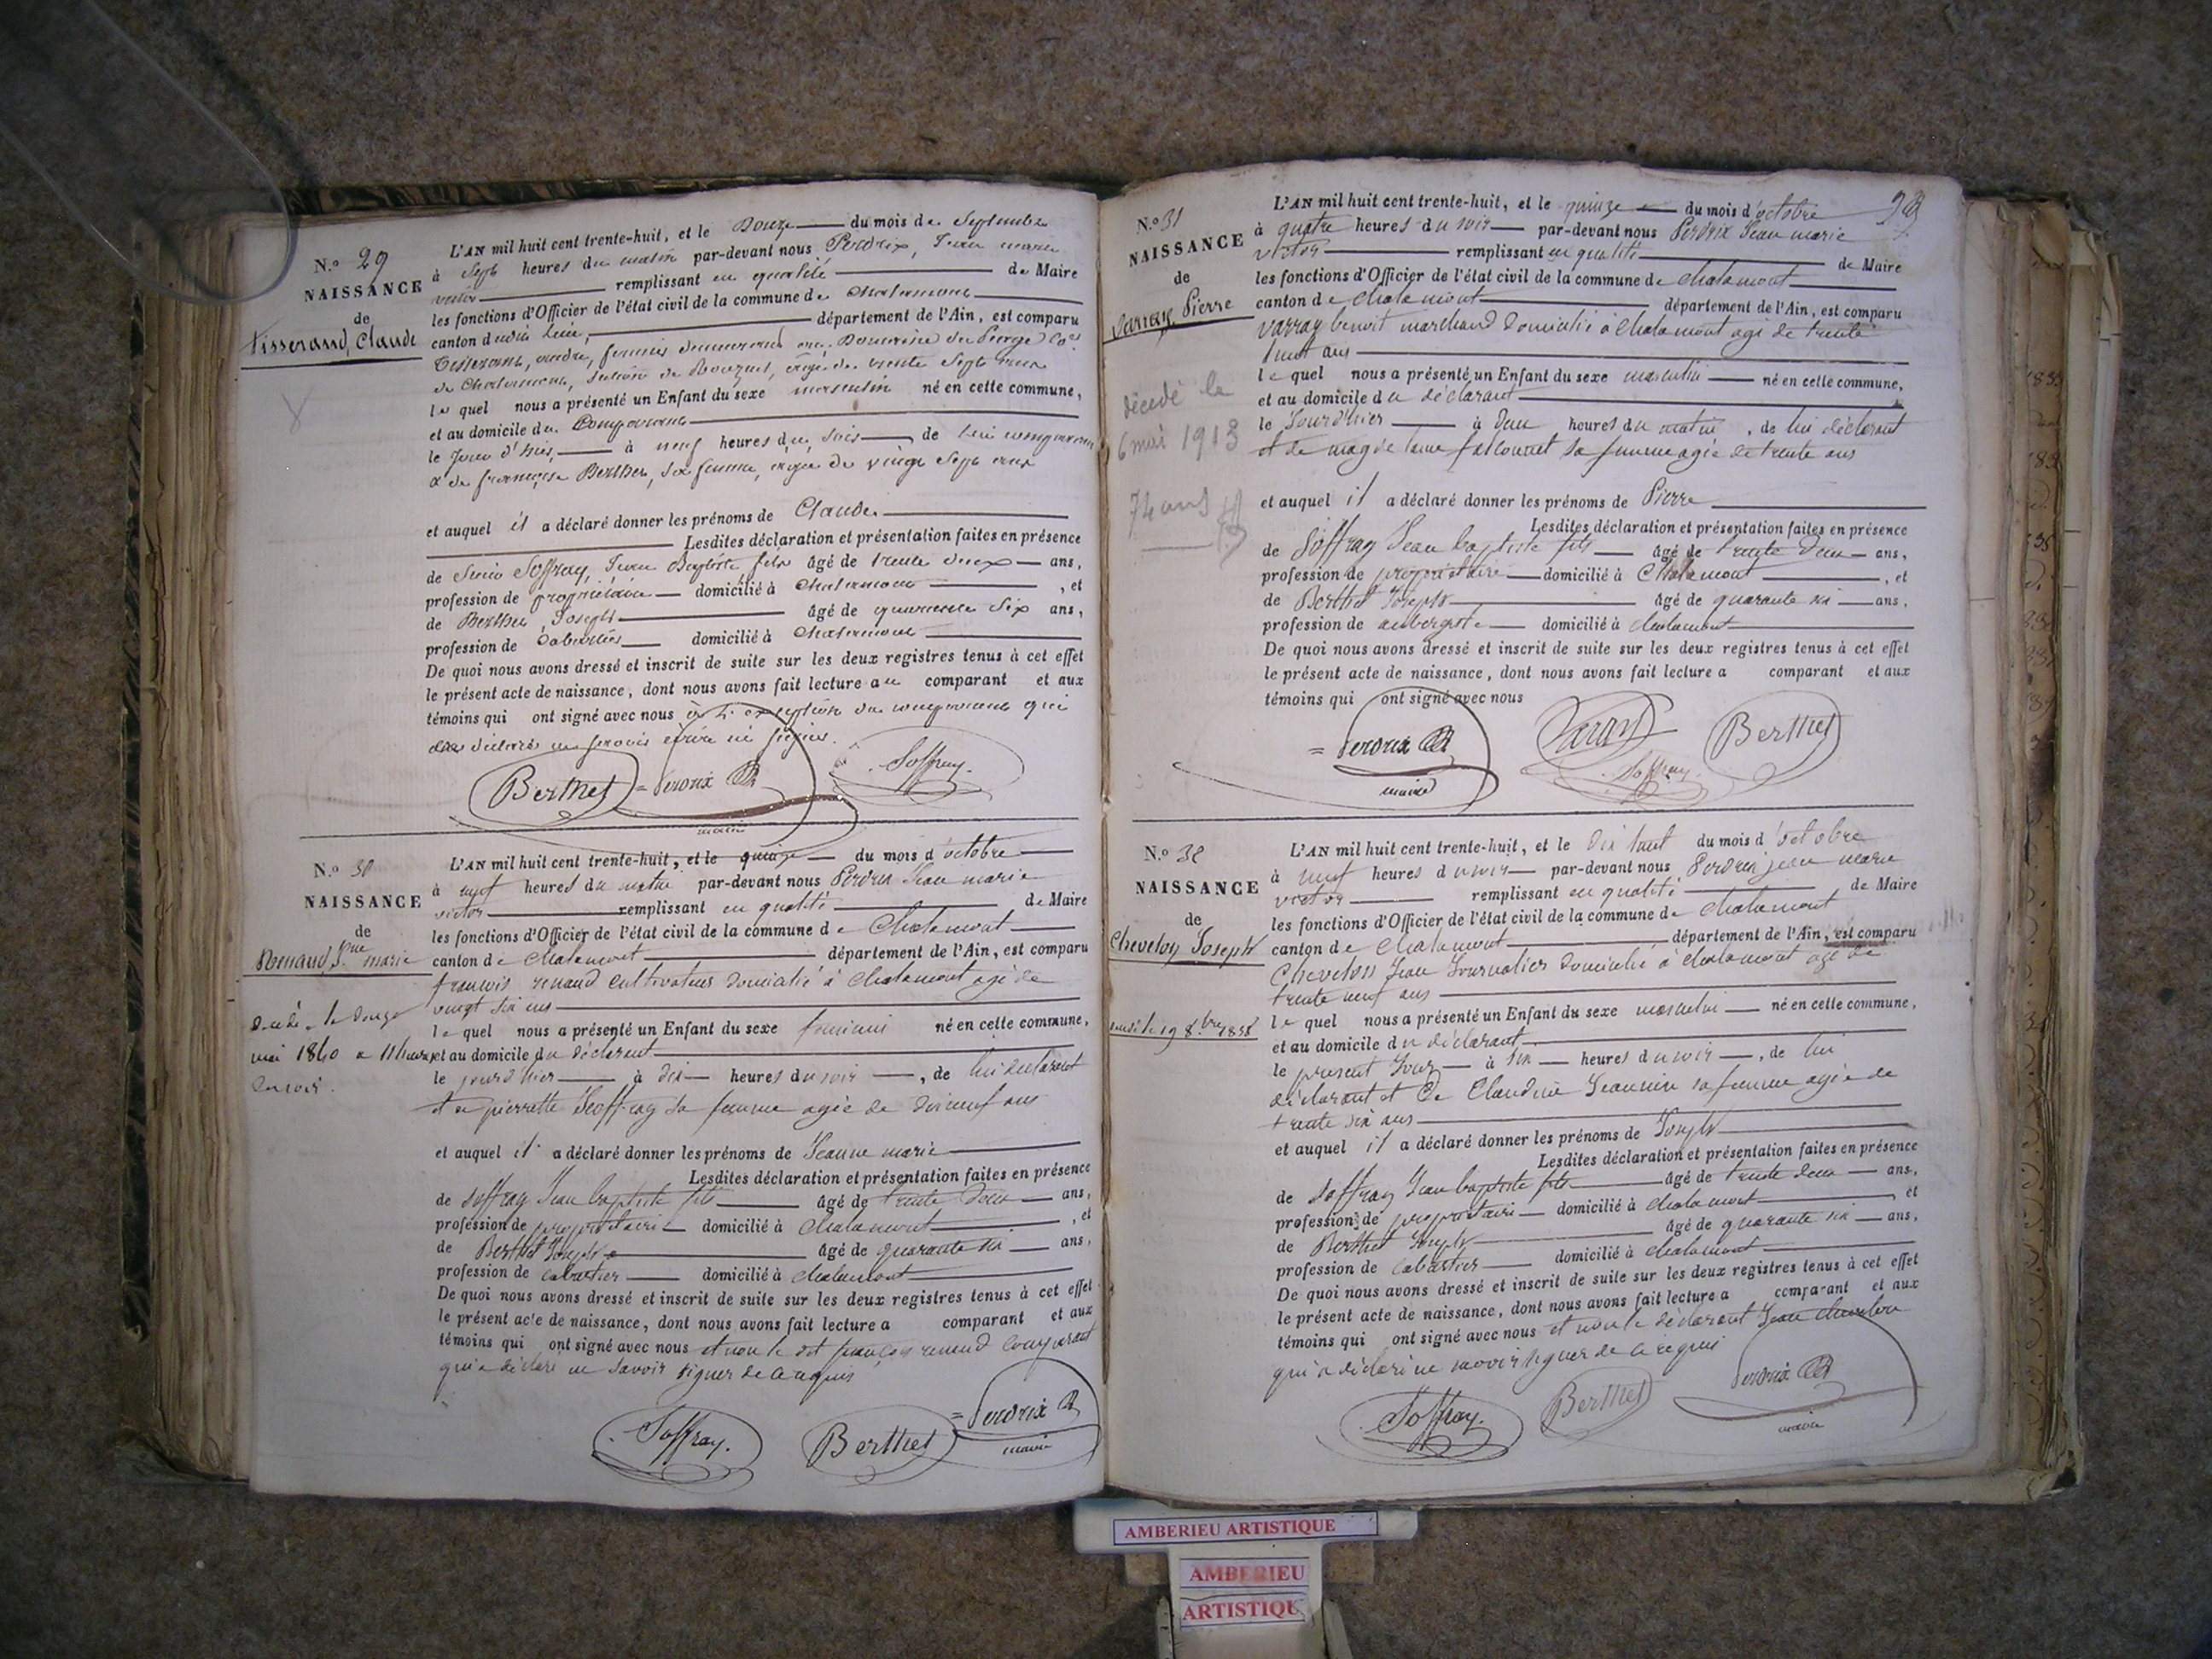 N.º 29
NAISSANCE
de
Tisserand, Claude
L'AN mil huit cent trente-huit, et le Douze du mois de Septembre
à Sept heures du matin par-devant nous Perdrix, Jean marie
victor remplissant en qualité de Maire
les fonctions d'Officier de l'état civil de la commune de Chalamont
canton dudit lieu, département de l'Ain, est comparu
Tisserand, andre, fermier demeurant au Domaine du
de Chalamont, âgé de trente Sept ans
le quel nous a présenté un Enfant du sexe masculin né en cette commune,
et au domicile du Comparant
le Jour d'hier, à neuf heures du Soir, de lui comparant
& de françoise Berthet, Sa femme, âgée de vingt Sept ans
et auquel il a déclaré donner les prénoms de Claude
Lesdites déclaration et présentation faites en présence
de Soffray, Jean Baptiste fils âgé de trente deux ans,
profession de propriétaire domicilié à Chalamont, et
de Berthet, Joseph âgé de quarante Six ans,
profession de Cabaretier domicilié à Chalamont
De quoi nous avons dressé et inscrit de suite sur les deux registres tenus à cet effet
le présent acte de naissance, dont nous avons fait lecture au comparant et aux
témoins qui ont signé avec nous à l'exception du comparant qui
a déclaré ne savoir écrire ni signer.
Berthet = Perdrix Soffray.
maire
N.º 30
NAISSANCE
de
Renaud J.ne marie
Décédée le douze
mai 1840 a 11 heures
du soir.
L'AN mil huit cent trente-huit, et le quinze du mois d'octobre
à sept heures du matin par-devant nous Perdrix Jean marie
victor remplissant en qualité de Maire
les fonctions d'Officier de l'état civil de la commune de Chalamont
canton de Chalamont département de l'Ain, est comparu
francois renaud cultivateur domicilié à Chalamont agé de
vingt six ans
le quel nous a présenté un Enfant du sexe feminin né en cette commune,
et au domicile du déclarant
le jour d'hier à dix heures du soir, de lui declarant
et de pierrette Geoffray sa femme agée de dixneuf ans
et auquel il a déclaré donner les prénoms de Jeanne marie
Lesdites déclaration et présentation faites en présence
de Soffray Jean baptiste fils âgé de trente deux ans,
profession de proprietaire domicilié à Chalamont, et
de Berthet Joseph âgé de quarante six ans,
profession de cabartier domicilié à Chalamont
De quoi nous avons dressé et inscrit de suite sur les deux registres tenus à cet effet
le présent acte de naissance, dont nous avons fait lecture a comparant et aux
témoins qui ont signé avec nous et non le dit françois renaud comparant
qui a déclaré ne savoir signer de ce requis
Soffray. Berthet = Perdrix
maire
28
N.º 31
NAISSANCE
de
Varray Pierre
décédé le
6 mai 1913
74 ans
L'AN mil huit cent trente-huit, et le quinze du mois d'octobre
à quatre heures du soir par-devant nous Perdrix Jean marie
victor remplissant en qualité de Maire
les fonctions d'Officier de l'état civil de la commune de Chalamont
canton de Chalamont département de l'Ain, est comparu
Varray benoit marchand domicilié à Chalamont agé de trente
huit ans
le quel nous a présenté un Enfant du sexe masculin né en cette commune,
et au domicile du déclarant
le Jourd'hier à deux heures du matin, de lui déclarant
et de magdelaine falconnet sa femme agée de trente ans
et auquel il a déclaré donner les prénoms de Pierre
Lesdites déclaration et présentation faites en présence
de Soffray Jean baptiste fils âgé de trente deux ans,
profession de proprietaire domicilié à Chalamont, et
de Berthet Joseph âgé de quarante six ans,
profession de aubergiste domicilié à Chalamont
De quoi nous avons dressé et inscrit de suite sur les deux registres tenus à cet effet
le présent acte de naissance, dont nous avons fait lecture a comparant et aux
témoins qui ont signé avec nous
= Perdrix Varay Berthet
maire Soffray.
N.º 32
NAISSANCE
de
Chevelon Joseph
le 19 8.bre 1838
L'AN mil huit cent trente-huit, et le dix huit du mois d'octobre
à neuf heures du soir par-devant nous Perdrix jean marie
victor remplissant en qualité de Maire
les fonctions d'Officier de l'état civil de la commune de Chalamont
canton de Chalamont département de l'Ain, est comparu
Chevelon Jean Journalier domicilié à Chalamont agé de
trente neuf ans
le quel nous a présenté un Enfant du sexe masculin né en cette commune,
et au domicile du déclarant
le present Jour à six heures du soir, de lui
déclarant et de Claudine Jeannin sa femme agée de
trente six ans
et auquel il a déclaré donner les prénoms de Joseph
Lesdites déclaration et présentation faites en présence
de Soffray Jean baptiste fils âgé de trente deux ans,
profession de proprietaire domicilié à Chalamont, et
de Berthet Joseph âgé de quarante six ans,
profession de Cabartier domicilié à Chalamont
De quoi nous avons dressé et inscrit de suite sur les deux registres tenus à cet effet
le présent acte de naissance, dont nous avons fait lecture a comparant et aux
témoins qui ont signé avec nous et non le déclarant Jean Chevelon
qui a déclaré ne savoir signer de ce requis
Soffray. Berthet Perdrix
maire
AMBERIEU ARTISTIQUE
AMBERIEU
ARTISTIQUE